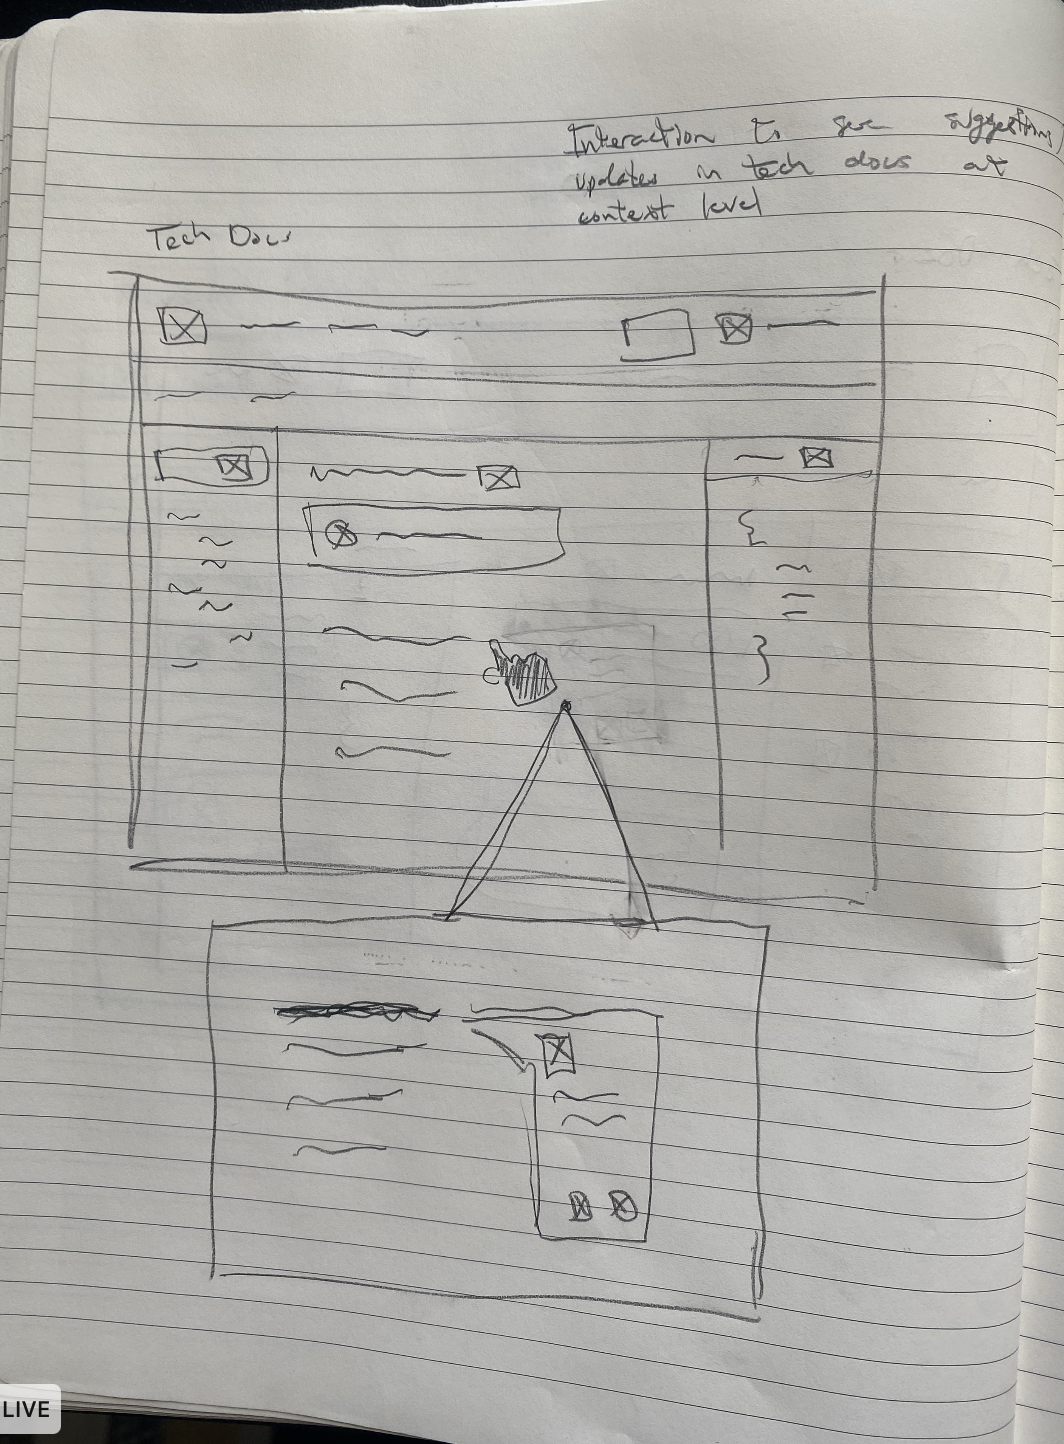 Interaction to see suggestions
updates in tech docs at
context level
Tech Docs
LIVE